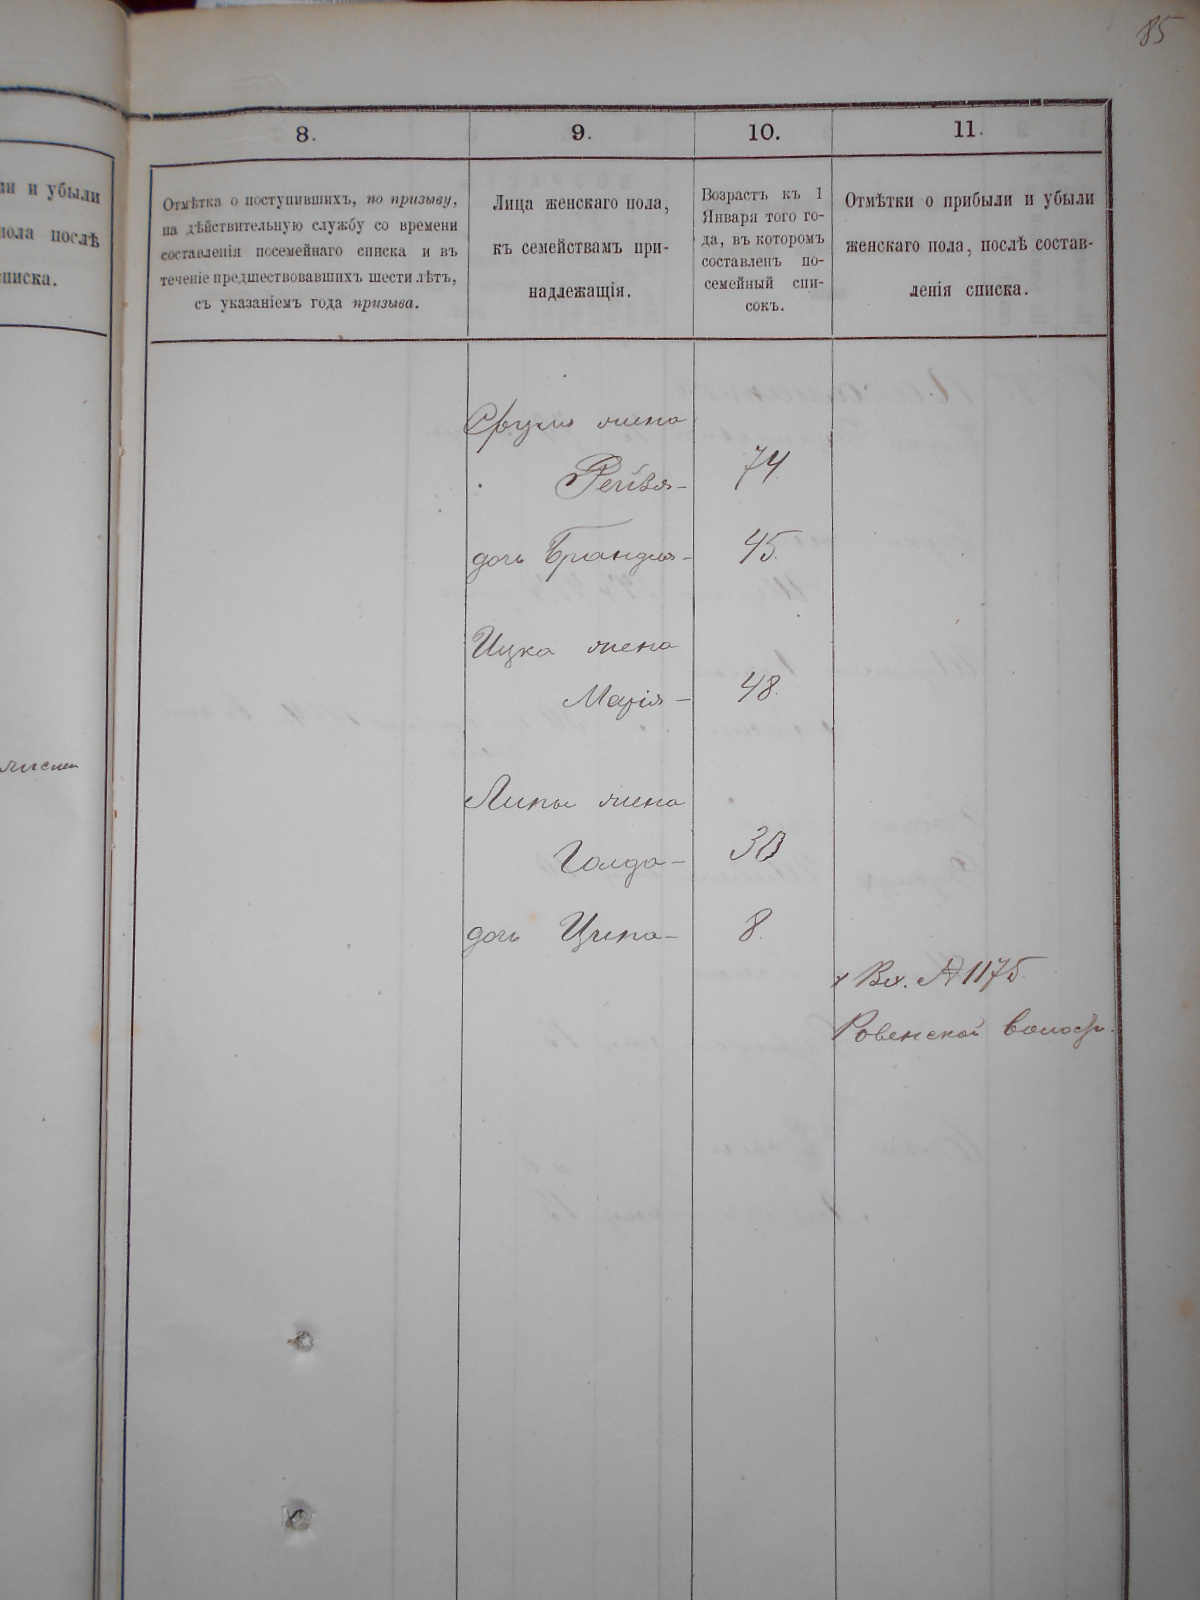 85
8.
9.
10.
11.
и убыли
послѣ
Отмѣтка о поступившихъ, по призыву,
на дѣйствительную службу со времени
составленія посемейнаго списка и въ
теченіе предшествовавшихъ шести лѣтъ,
съ указаніемъ года призыва.
Лица женскаго пола,
къ семействамъ при-
надлежащія.
Возрастъ къ 1
Января того го-
да, въ которомъ
составленъ по-
семейный спи-
сокъ.
Отмѣтки о прибыли и убыли
женскаго пола, послѣ состав-
ленія списка.
Сруля жена
Рейзя- 74
дочь Брандля- 45.
Ицка жена
Марія- 48.
Липы жена
Голда- 30
дочь Ципа- 8.
х Вх. № 1175.
Ровенской волости.